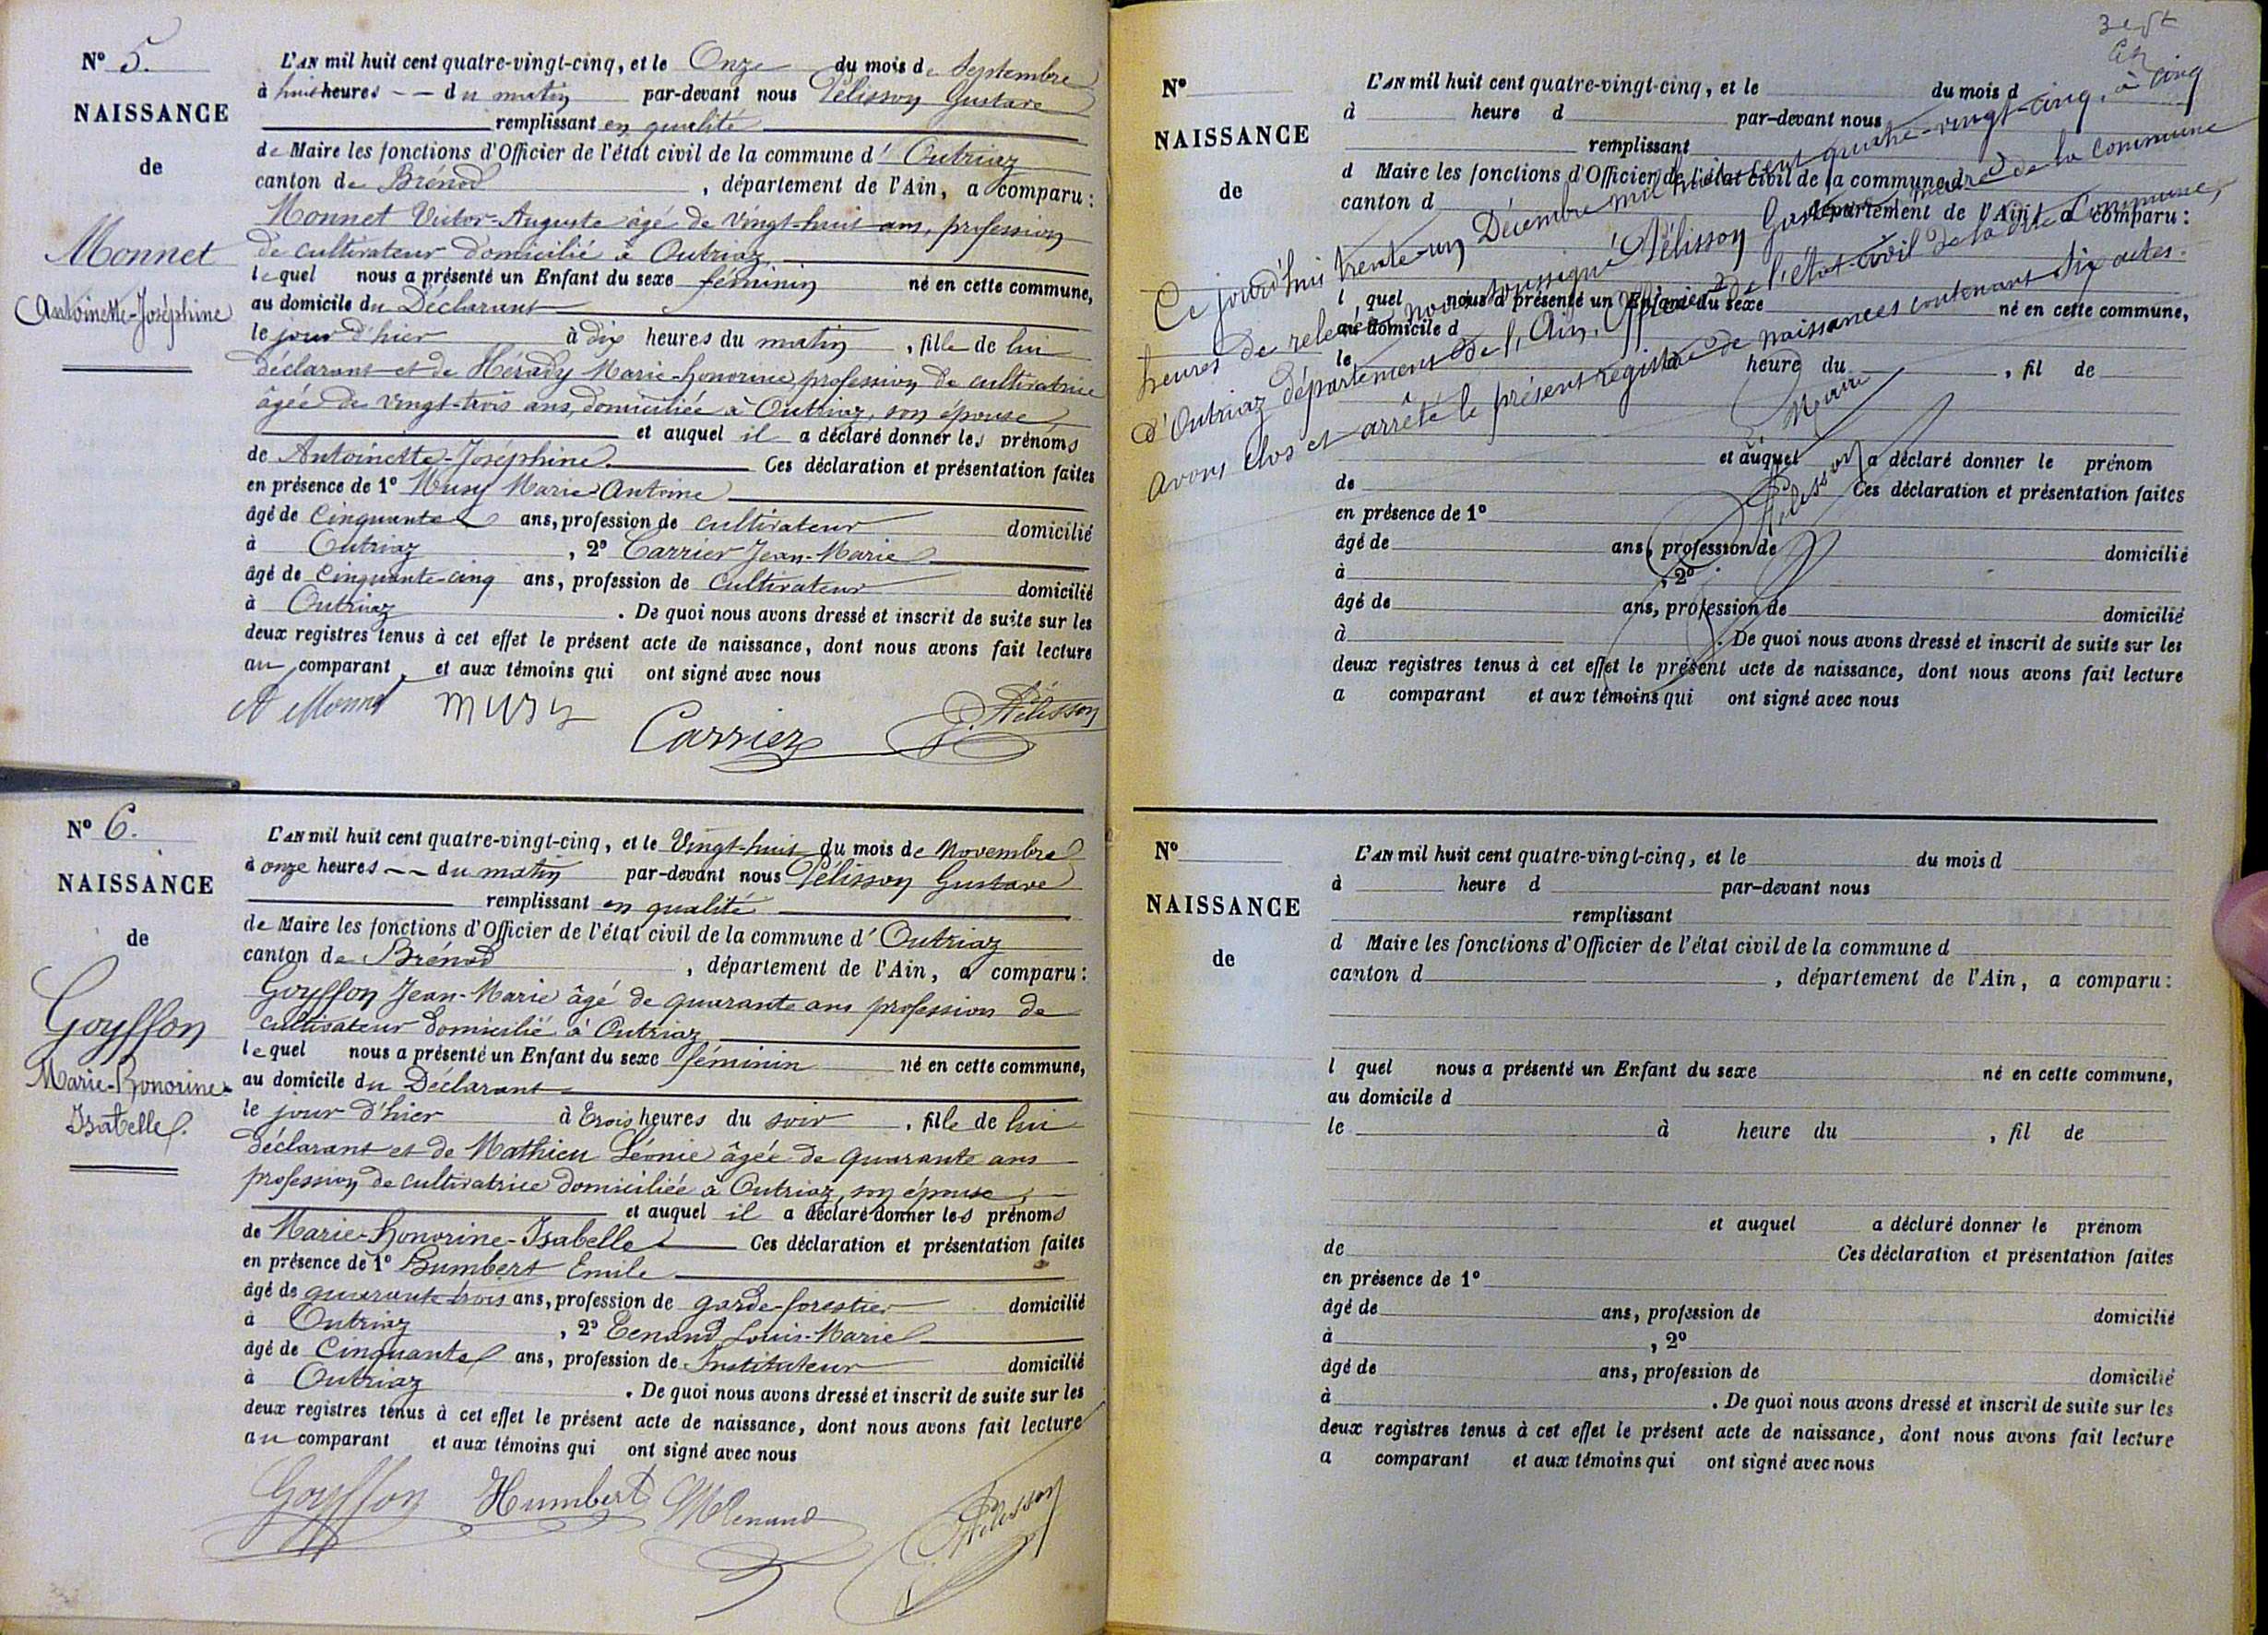 N° 5.
NAISSANCE
de
Monnet
Antoinette-Joséphine
L'AN mil huit cent quatre-vingt-cinq, et le Onze du mois de Septembre
à huit heures du matin par-devant nous Pélisson Gustave
remplissant en qualité
de Maire les fonctions d'Officier de l'état civil de la commune d'Outriaz
canton de Brénod, département de l'Ain, a comparu :
Monnet Victor-Auguste âgé de vingt-huit ans, profession
de cultivateur domicilié à Outriaz,
lequel nous a présenté un Enfant du sexe féminin né en cette commune,
au domicile du Déclarant
le jour d'hier à dix heures du matin, fille de lui
déclarant et de Marie-Honorine, profession de cultivatrice
âgée de vingt-trois ans, domiciliée à Outriaz, son épouse,
et auquel il a déclaré donner les prénoms
de Antoinette-Joséphine. Ces déclaration et présentation faites
en présence de 1° Musy Marie Antoine
âgé de Cinquante ans, profession de cultivateur domicilié
à Outriaz, 2° Carrier Jean-Marie
âgé de Cinquante-cinq ans, profession de cultivateur domicilié
à Outriaz. De quoi nous avons dressé et inscrit de suite sur les
deux registres tenus à cet effet le présent acte de naissance, dont nous avons fait lecture
au comparant et aux témoins qui ont signé avec nous
A Monnet musy Carrier G. Pélisson
N° 6.
NAISSANCE
de
Goyffon
Marie-Honorine-
Isabelle.
L'AN mil huit cent quatre-vingt-cinq, et le Vingt-huit du mois de Novembre
à onze heures du matin par-devant nous Pélisson Gustave
remplissant en qualité
de Maire les fonctions d'Officier de l'état civil de la commune d'Outriaz
canton de Brénod, département de l'Ain, a comparu :
Goyffon Jean-Marie âgé de quarante ans profession de
cultivateur domicilié à Outriaz
lequel nous a présenté un Enfant du sexe féminin né en cette commune,
au domicile du Déclarant
le jour d'hier à trois heures du soir, fille de lui
déclarant et de Mathieu Léonie âgée de quarante ans
profession de cultivatrice domiciliée à Outriaz, son épouse,
et auquel il a déclaré donner les prénoms
de Marie-Honorine-Isabelle Ces déclaration et présentation faites
en présence de 1° Humbert Emile
âgé de quarante trois ans, profession de garde-forestier domicilié
à Outriaz, 2° Tenand Louis-Marie
âgé de Cinquante ans, profession de Instituteur domicilié
à Outriaz. De quoi nous avons dressé et inscrit de suite sur les
deux registres tenus à cet effet le présent acte de naissance, dont nous avons fait lecture
au comparant et aux témoins qui ont signé avec nous
Goyffon Humbert Tenand G. Pélisson
N°
NAISSANCE
de
L'AN mil huit cent quatre-vingt-cinq, et le du mois d
à heure d par-devant nous
remplissant
d Maire les fonctions d'Officier de l'état civil de la commune d
canton d département de l'Ain, a comparu :
l quel nous a présenté un Enfant du sexe né en cette commune,
au domicile d
le à heure du , fil de
et auquel a déclaré donner le prénom
de Ces déclaration et présentation faites
en présence de 1°
âgé de ans, profession de domicilié
à , 2°
âgé de ans, profession de domicilié
à . De quoi nous avons dressé et inscrit de suite sur les
deux registres tenus à cet effet le présent acte de naissance, dont nous avons fait lecture
a comparant et aux témoins qui ont signé avec nous
Ce jourd'hui trente-un Décembre mil huit cent quatre-vingt-cinq, à cinq
heures de relevée, nous soussigné Pélisson Gustave, maire de la commune
d'Outriaz département de l'Ain, Officier de l'état-civil de la dite Commune,
avons clos et arrêté le présent registre de naissances contenant six actes.
Maire
G. Pélisson
N°
NAISSANCE
de
L'AN mil huit cent quatre-vingt-cinq, et le du mois d
à heure d par-devant nous
remplissant
d Maire les fonctions d'Officier de l'état civil de la commune d
canton d , département de l'Ain, a comparu :
l quel nous a présenté un Enfant du sexe né en cette commune,
au domicile d
le à heure du , fil de
et auquel a déclaré donner le prénom
de Ces déclaration et présentation faites
en présence de 1°
âgé de ans, profession de domicilié
à , 2°
âgé de ans, profession de domicilié
à . De quoi nous avons dressé et inscrit de suite sur les
deux registres tenus à cet effet le présent acte de naissance, dont nous avons fait lecture
a comparant et aux témoins qui ont signé avec nous